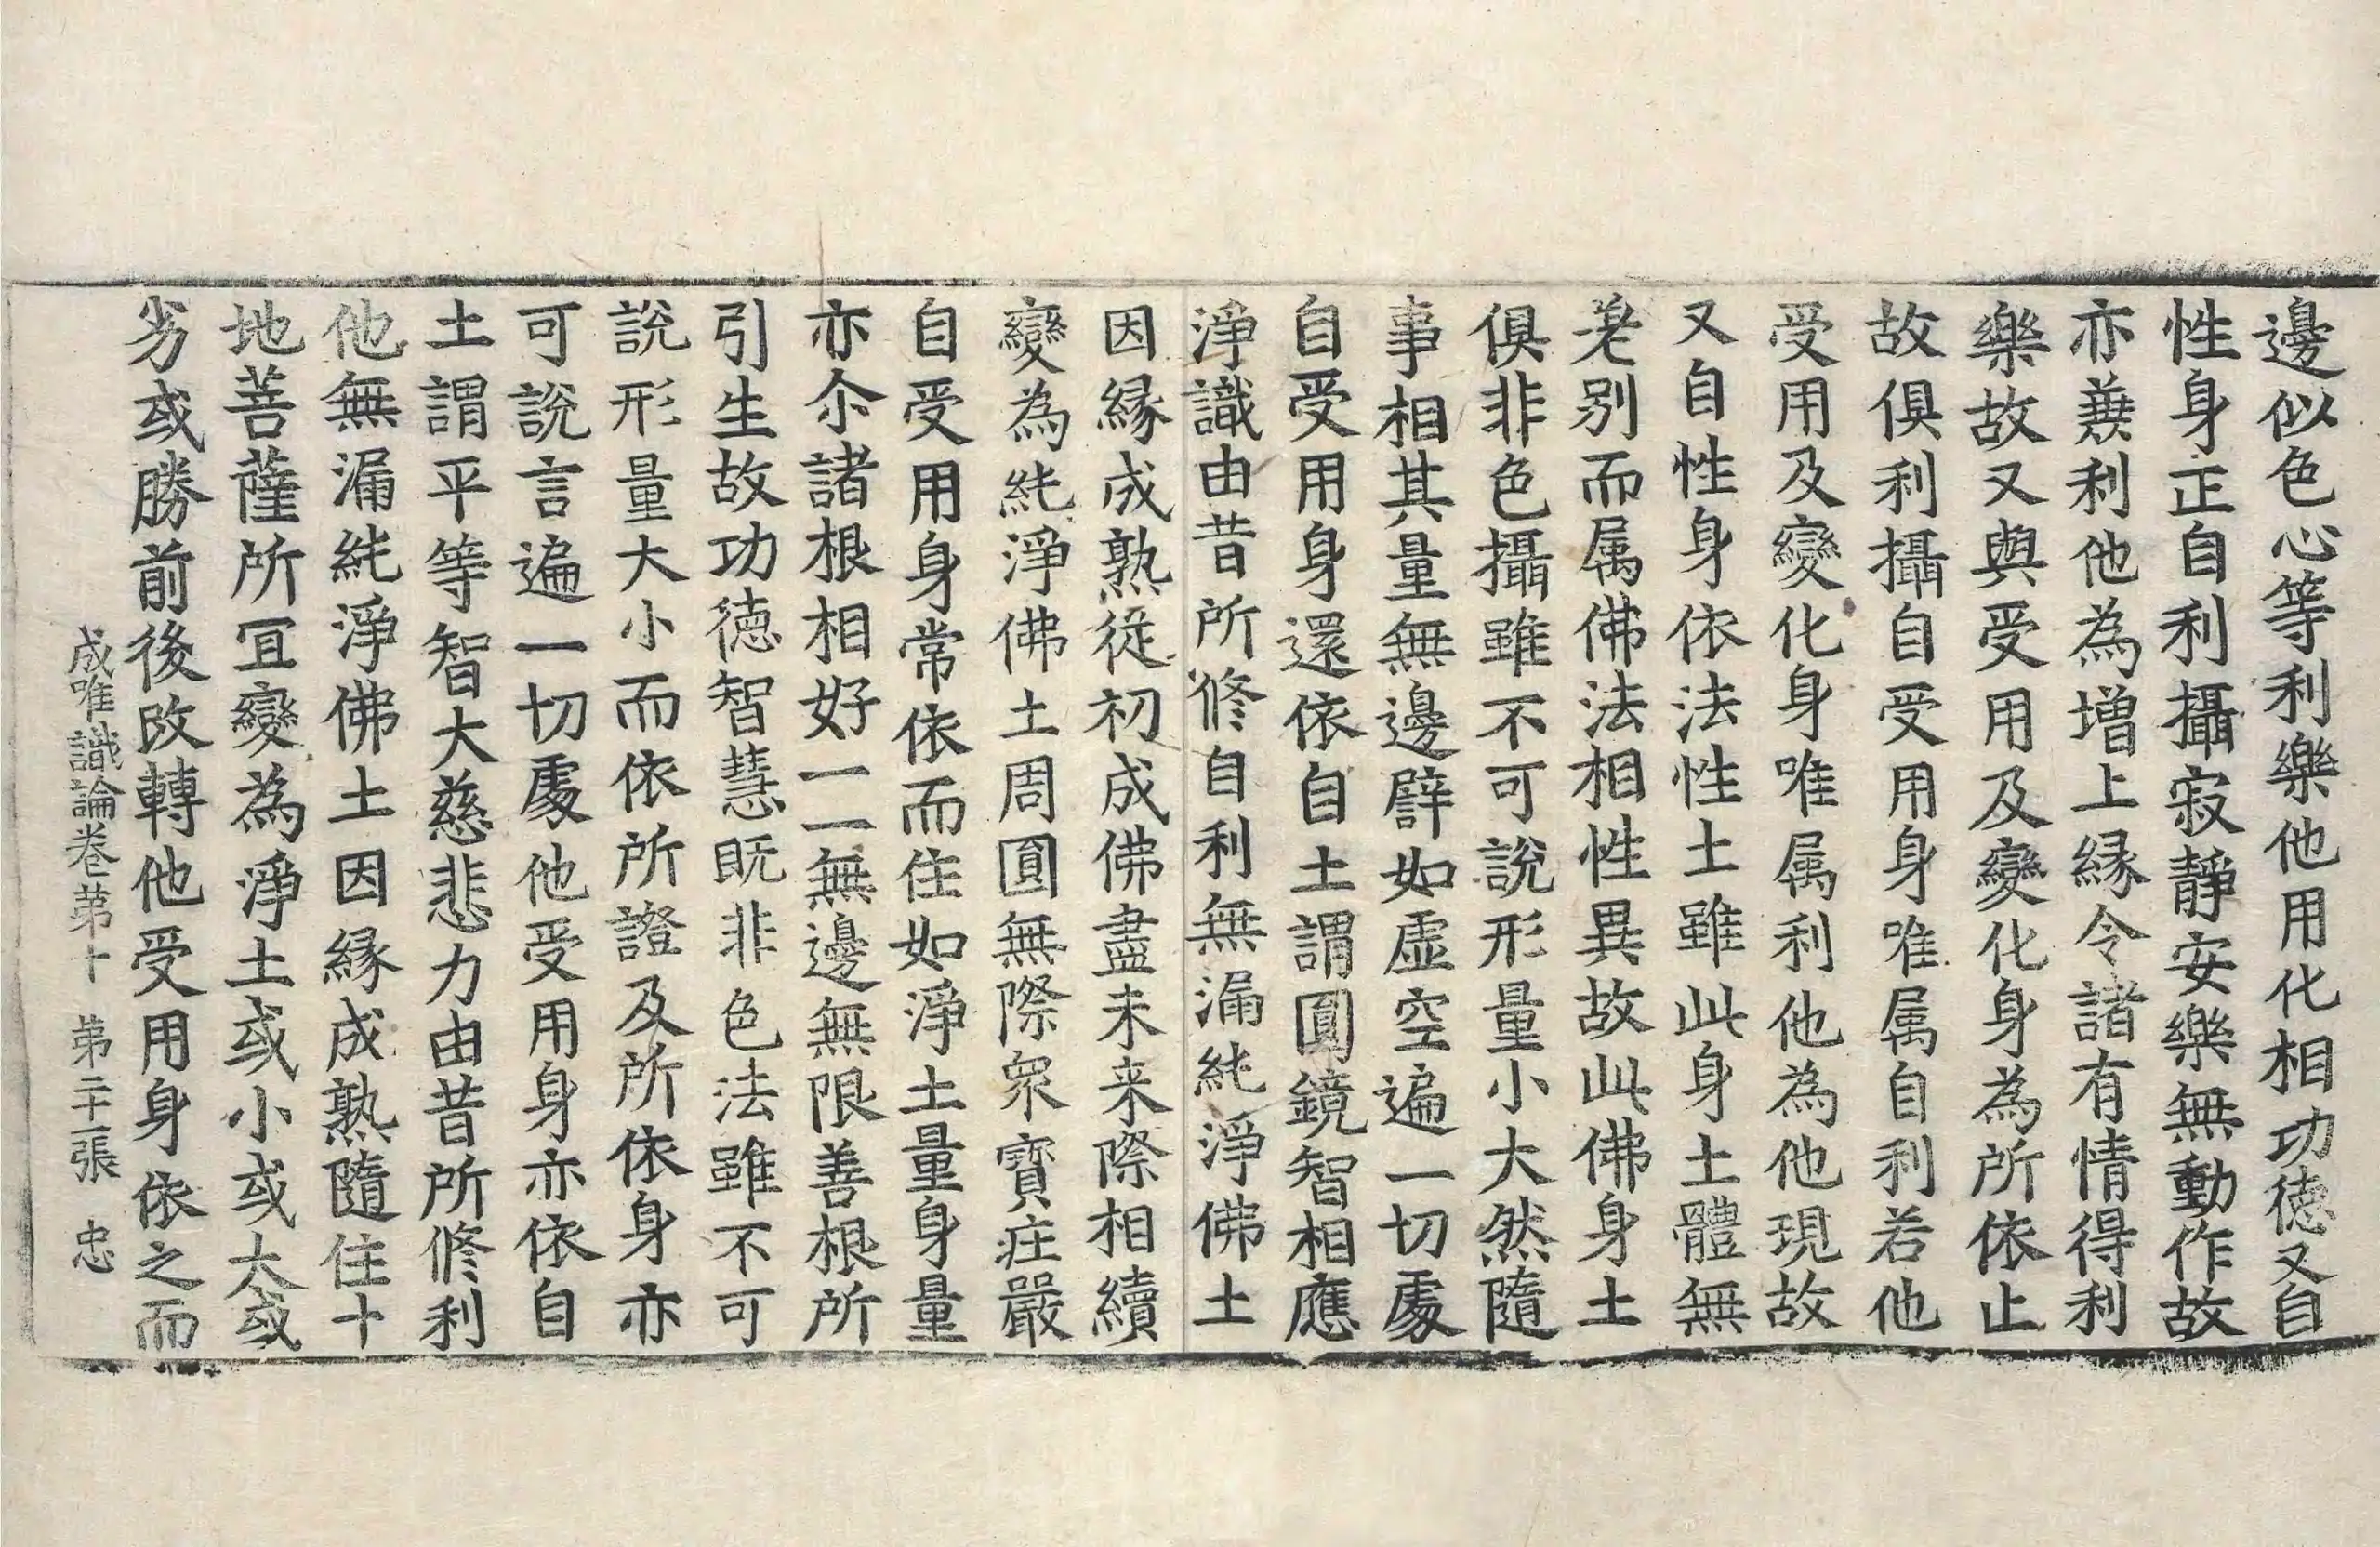 邊似色心等利樂他用化相功德又自
性身正自利攝寂靜安樂無動作故
亦兼利他為增上緣令諸有情得利
樂故又與受用及變化身為所依止
故俱利攝自受用身唯属自利若他
受用及變化身唯属利他為他現故
又自性身依法性土雖此身土體無
差別而属佛法相性異故此佛身土
俱非色攝雖不可說形量小大然隨
事相其量無邊譬如虛空遍一切處
自受用身還依自土謂圓鏡智相應
淨識由昔所修自利無漏純淨佛土
因緣成熟從初成佛盡未来際相續
變為純淨佛土周圓無際眾寶莊嚴
自受用身常依而住如淨土量身量
亦尒諸根相好一一無邊無限善根所
引生故功德智慧既非色法雖不可
說形量大小而依所證及所依身亦
可說言遍一切處他受用身亦依自
土謂平等智大慈悲力由昔所修利
他無漏純淨佛土因緣成熟隨住十
地菩薩所冝變為淨土或小或大或
劣或勝前後改轉他受用身依之而
成唯識論卷第十 第二十一張 忠